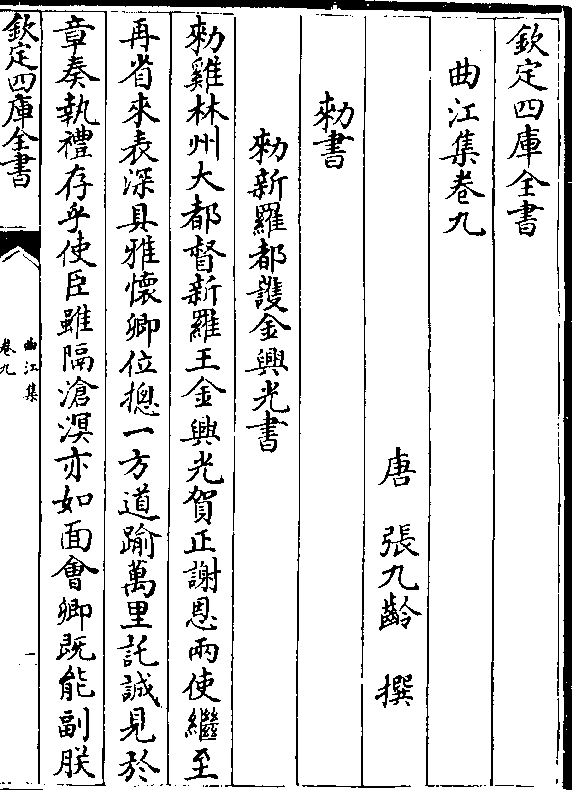 欽定四庫全書
曲江集卷九
唐 張九齡 撰
勅書
勅新羅都護金興光書
勅雞林州大都督新羅王金興光賀正謝恩兩使繼至
再省來表深具雅懷卿位揔一方道踰萬里託誠見於
章奏執禮存乎使臣雖隔滄溟亦如面會卿既能副朕
欽定四庫全書
曲江集
卷九
一